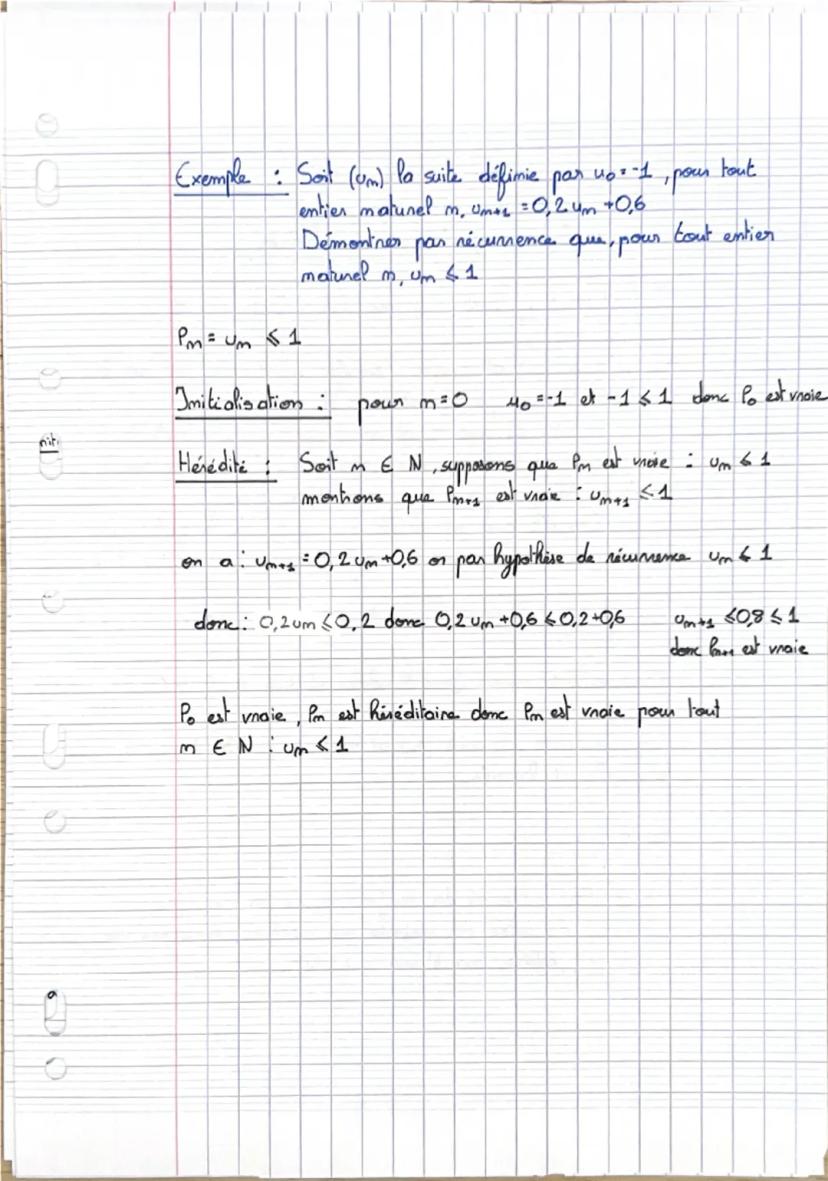 Exemple : Soit (un) la suite définie par u0 = -1, pour tout
entier naturel n, un+1 = 0,2un + 0,6
Démontrer par récurrence que, pour tout entier
naturel n, un ≤ 1
Pn = un ≤ 1
Initialisation : pour n=0 u0 = -1 et -1 ≤ 1 donc P0 est vraie
Hérédité : Soit n ∈ N, supposons que Pn est vraie : un ≤ 1
montrons que Pn+1 est vraie : un+1 ≤ 1
on a : un+1 = 0,2un + 0,6 or par hypothèse de récurrence un ≤ 1
donc : 0,2un ≤ 0,2 donc 0,2un + 0,6 ≤ 0,2 + 0,6 un+1 ≤ 0,8 ≤ 1
donc Pn+1 est vraie
P0 est vraie, Pn est héréditaire donc Pn est vraie pour tout
n ∈ N : un ≤ 1